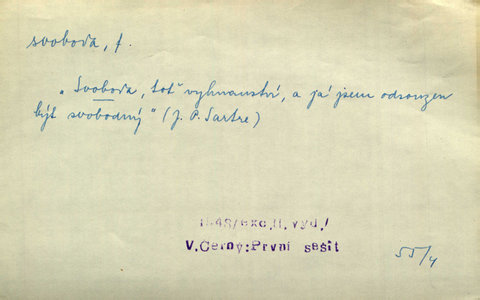 svoboda, f.
„Svoboda, toť vyhnanství, a já jsem odsouzen
být svobodný" (J. P. Sartre)
1948/exc. II. vyd./
V. Černý: První sešit
55/4